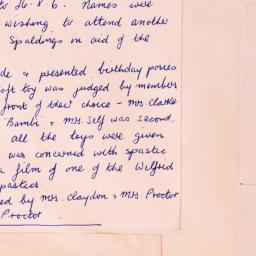 to £6.8.6. Names were
wishing to attend another
Spaldings in aid of the
de & presented birthday posies
oft toy was judged by members
front of their choice - Mrs Clarke
Bambi & Mrs Self was second,
all the toys were given
was concerned with spastic
a film of one of the Wilfred
spastics
ed by Mrs. Claydon & Mrs Proctor
Proctor.